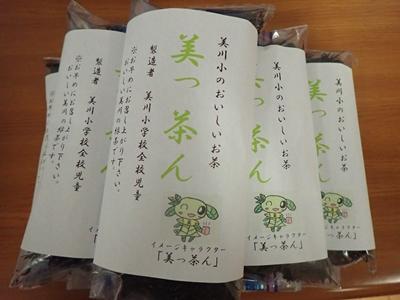 美川小のおいしいお茶
美っ茶ん
製造者　美川小学校全校児童
※お早めにお召し上がり下さい。
おいしい美川の緑茶です。
イメージキャラクター
「美っ茶ん」
美川小のおいしいお茶
美っ茶ん
イメージキャラクター
「美っ茶ん」